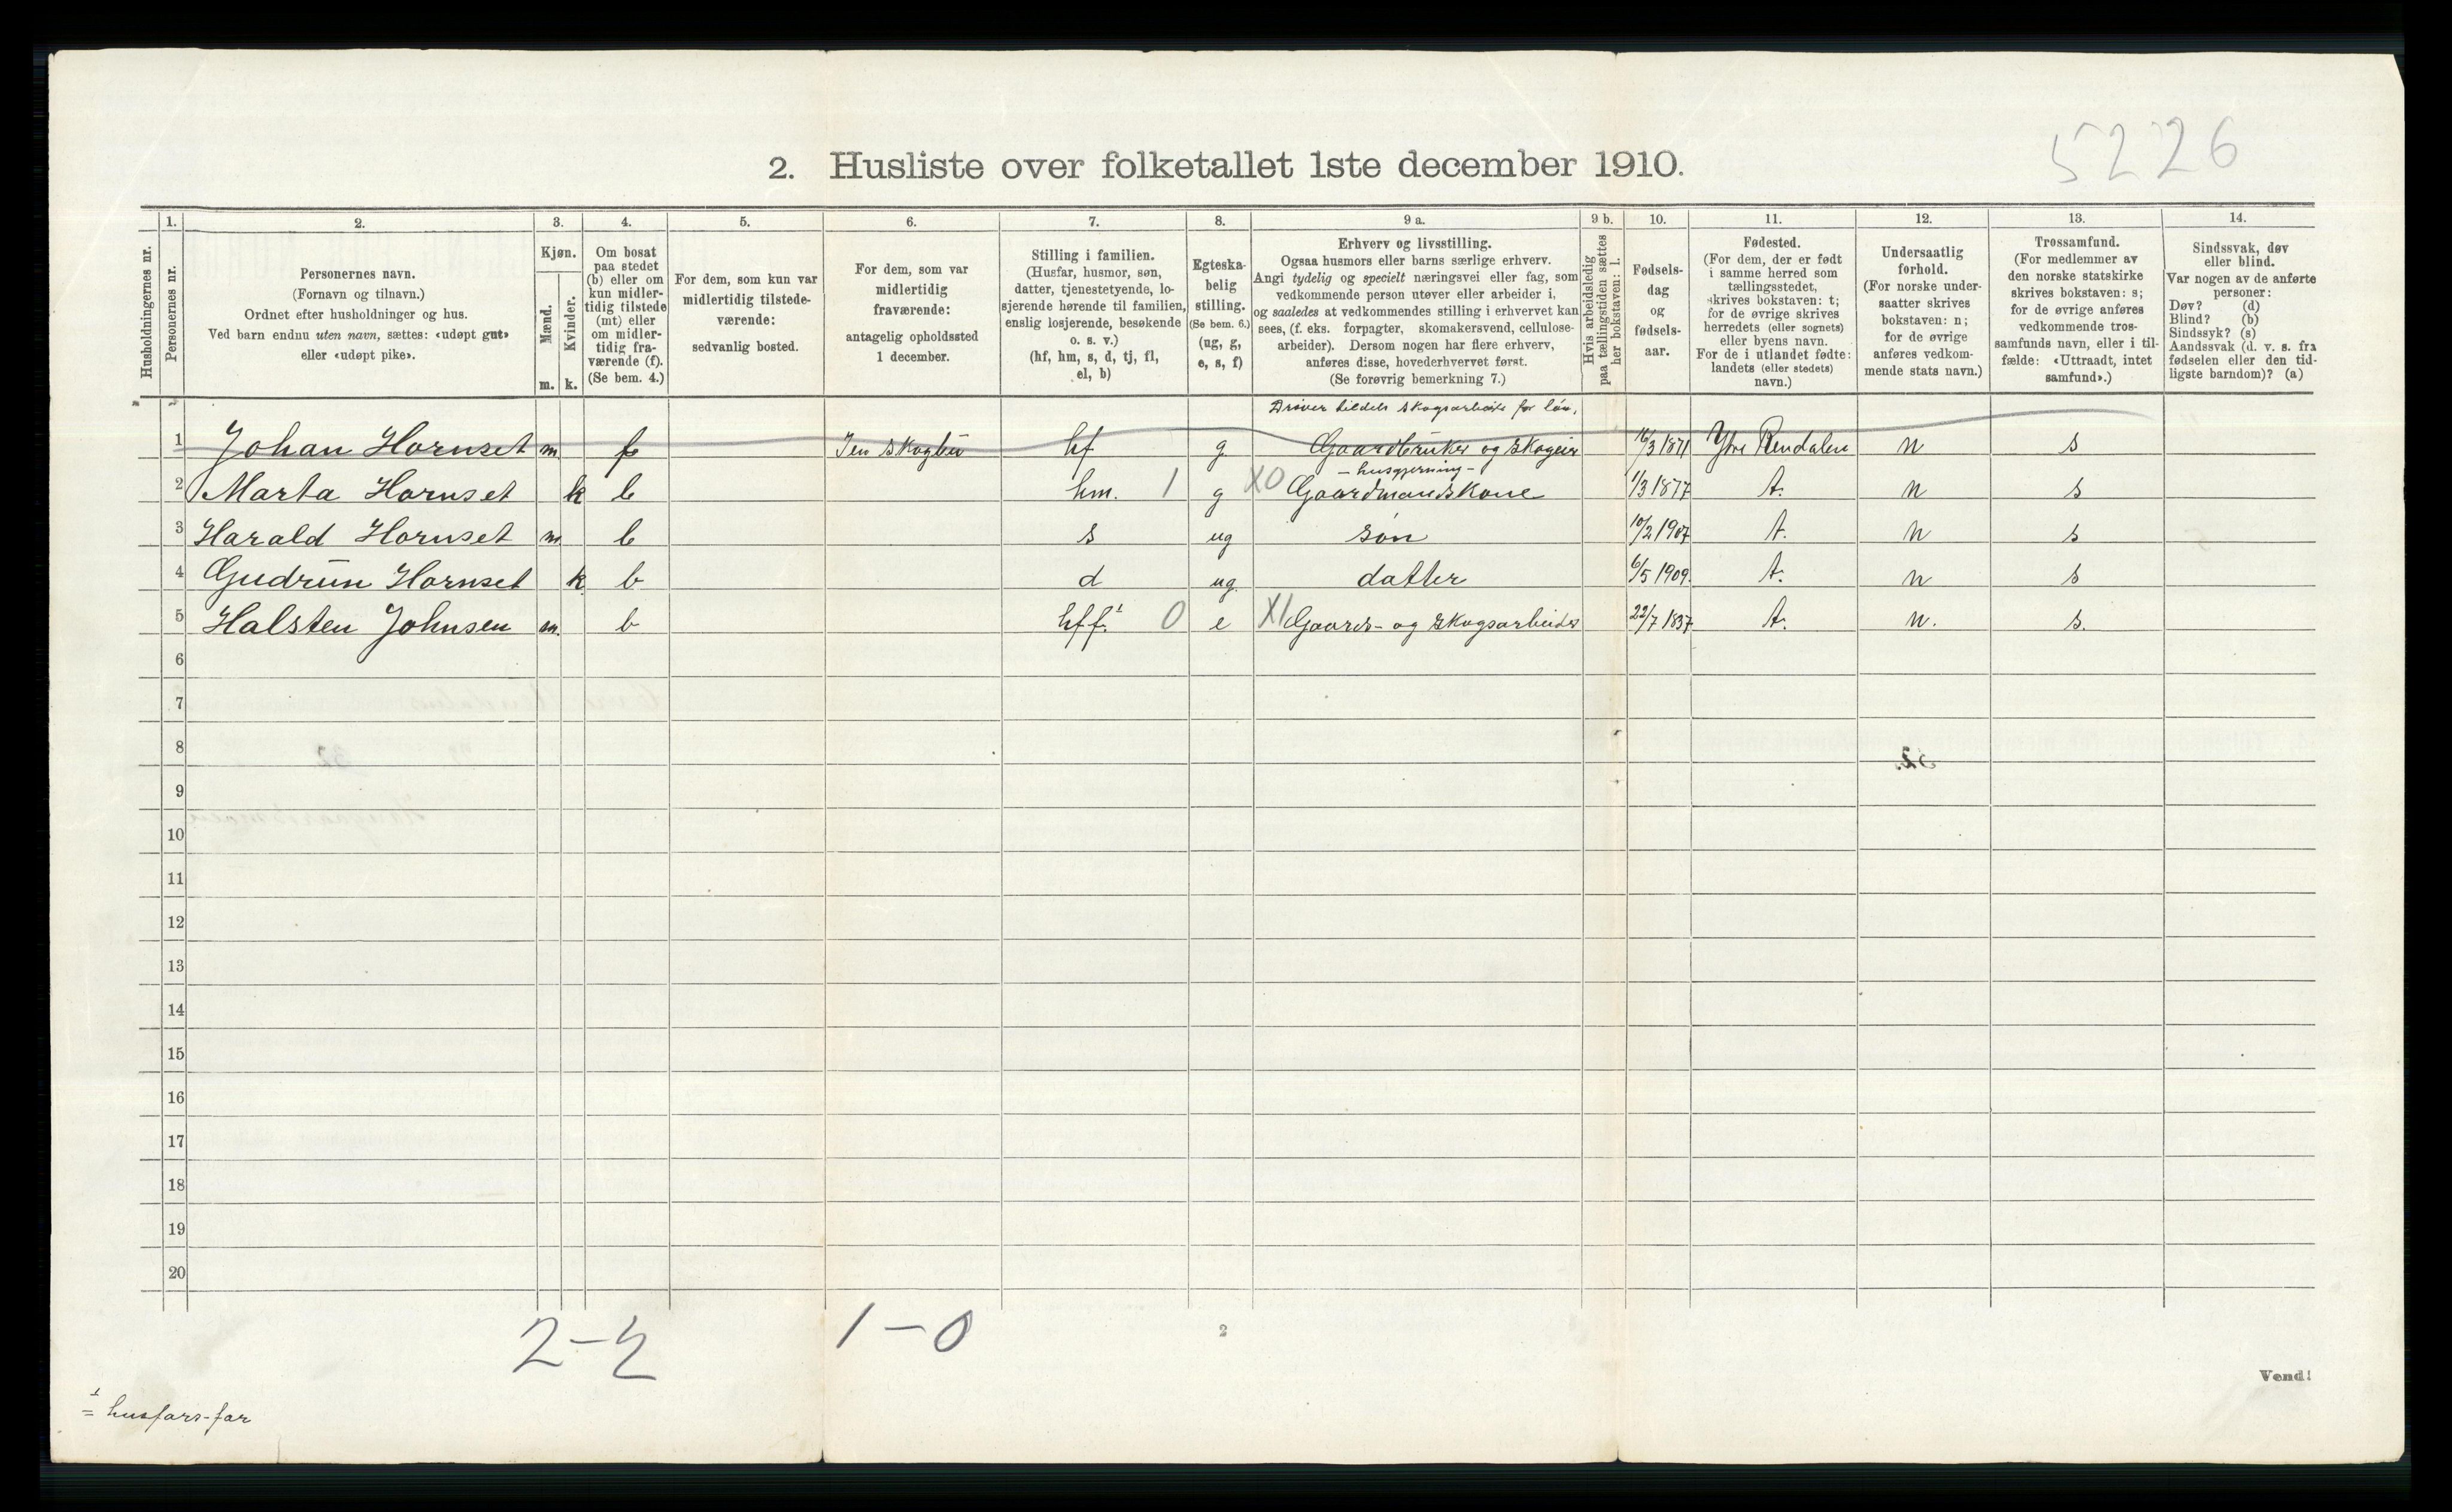 5226
2. Husliste over folketallet 1ste december 1910.
Husholdningernes nr.
1. Personernes nr.
2. Personernes navn.
(Fornavn og tilnavn.)
Ordnet efter husholdninger og hus.
Ved barn endnu uten navn, sættes: «udøpt gut»
eller «udøpt pike».
3. Kjøn.
Mænd. m.
Kvinder. k.
4. Om bosat
paa stedet
(b) eller om
kun midler-
tidig tilstede
(mt) eller
om midler-
tidig fra-
værende (f).
(Se bem. 4.)
5. For dem, som kun var
midlertidig tilstede-
værende:
sedvanlig bosted.
6. For dem, som var
midlertidig
fraværende:
antagelig opholdssted
1 december.
7. Stilling i familien.
(Husfar, husmor, søn,
datter, tjenestetyende, lo-
sjerende hørende til familien,
enslig losjerende, besøkende
o. s. v.)
(hf, hm, s, d, tj, fl,
el, b)
8. Egteska-
belig
stilling.
(Se bem. 6.)
(ug, g,
e, s, f)
9 a. Erhverv og livsstilling.
Ogsaa husmors eller barns særlige erhverv.
Angi tydelig og specielt næringsvei eller fag, som
vedkommende person utøver eller arbeider i,
og saaledes at vedkommendes stilling i erhvervet kan
sees, (f. eks. forpagter, skomakersvend, cellulose-
arbeider). Dersom nogen har flere erhverv,
anføres disse, hovederhvervet først.
(Se forøvrig bemerkning 7.)
9 b. Hvis arbeidsledig
paa tællingstiden sættes
her bokstaven: l.
10. Fødsels-
dag
og
fødsels-
aar.
11. Fødested.
(For dem, der er født
i samme herred som
tællingsstedet,
skrives bokstaven: t;
for de øvrige skrives
herredets (eller sognets)
eller byens navn.
For de i utlandet fødte:
landets (eller stedets)
navn.)
12. Undersaatlig
forhold.
(For norske under-
saatter skrives
bokstaven: n;
for de øvrige
anføres vedkom-
mende stats navn.)
13. Trossamfund.
(For medlemmer av
den norske statskirke
skrives bokstaven: s;
for de øvrige anføres
vedkommende tros-
samfunds navn, eller i til-
fælde: «Uttraadt, intet
samfund».)
14. Sindssvak, døv
eller blind.
Var nogen av de anførte
personer:
Døv? (d)
Blind? (b)
Sindssyk? (s)
Aandssvak (d. v. s. fra
fødselen eller den tid-
ligste barndom)? (a)
Driver tildels skogsarbeide for løn.
1 Johan Hornset m. f I en skogbu hf g Gaardbruker og skogeier 16/3 1871 Ytre Rendalen n s
- husgjerning -
2 Marta Hornset k b hm. 1 g X0 Gaardmandskone 1/3 1877 t. n s
3 Harald Hornset m. b s ug søn 10/2 1907 t. n s
4 Gudrun Hornset k b d ug. datter 6/5 1909. t. n s
5 Halsten Johnsen m. b hff.¹ 0 e X1 Gaards- og skogsarbeider 22/7 1837 t. n. s.
6
7
8
9
10
11
12
13
14
15
16
17
18
19
20
2-2 1-0
2
Vend!
1 = husfars-far